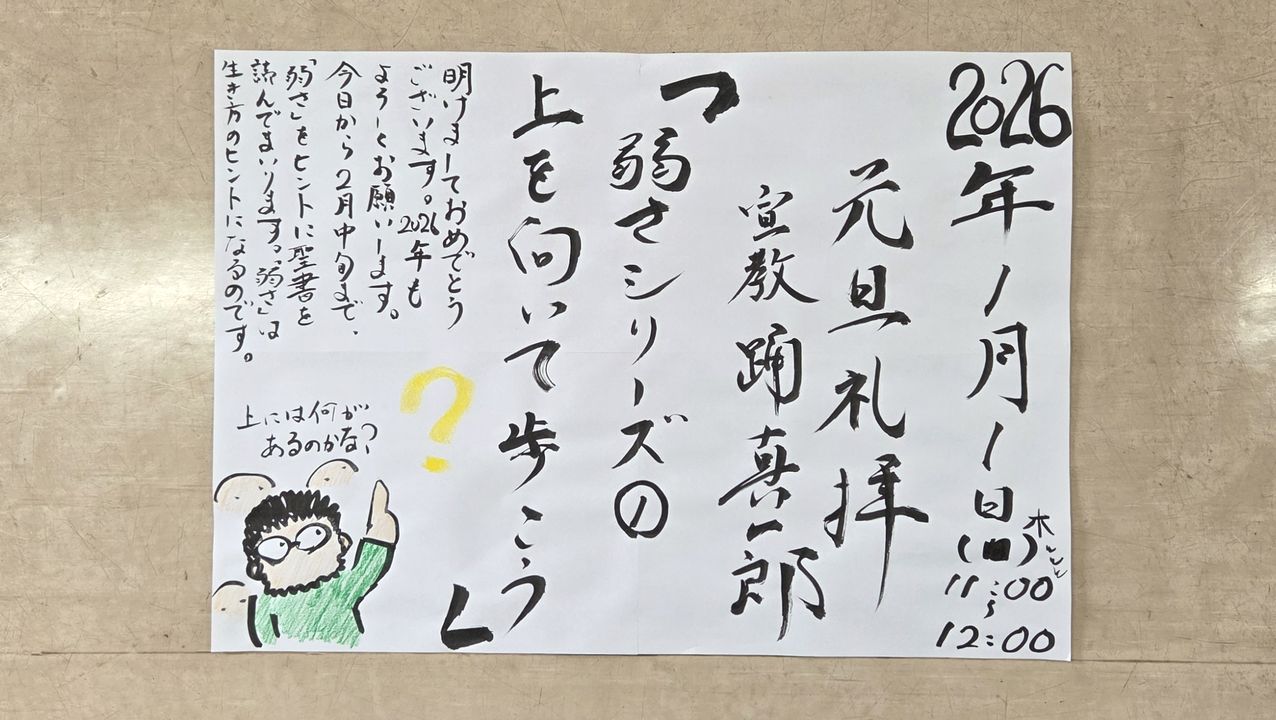 2026年1月1日(木)
11:00から
12:00
元旦礼拝
宣教 踊真一郎
「弱さシリーズの
上を向いて歩こう」
明けましておめでとう
ございます。2026年も
よろしくお願いします。
今日から2月中旬まで、
「弱さ」をヒントに聖書を
読んでまいります。「弱さ」は
生き方のヒントになるのです。
?
上には何が
あるのかな?